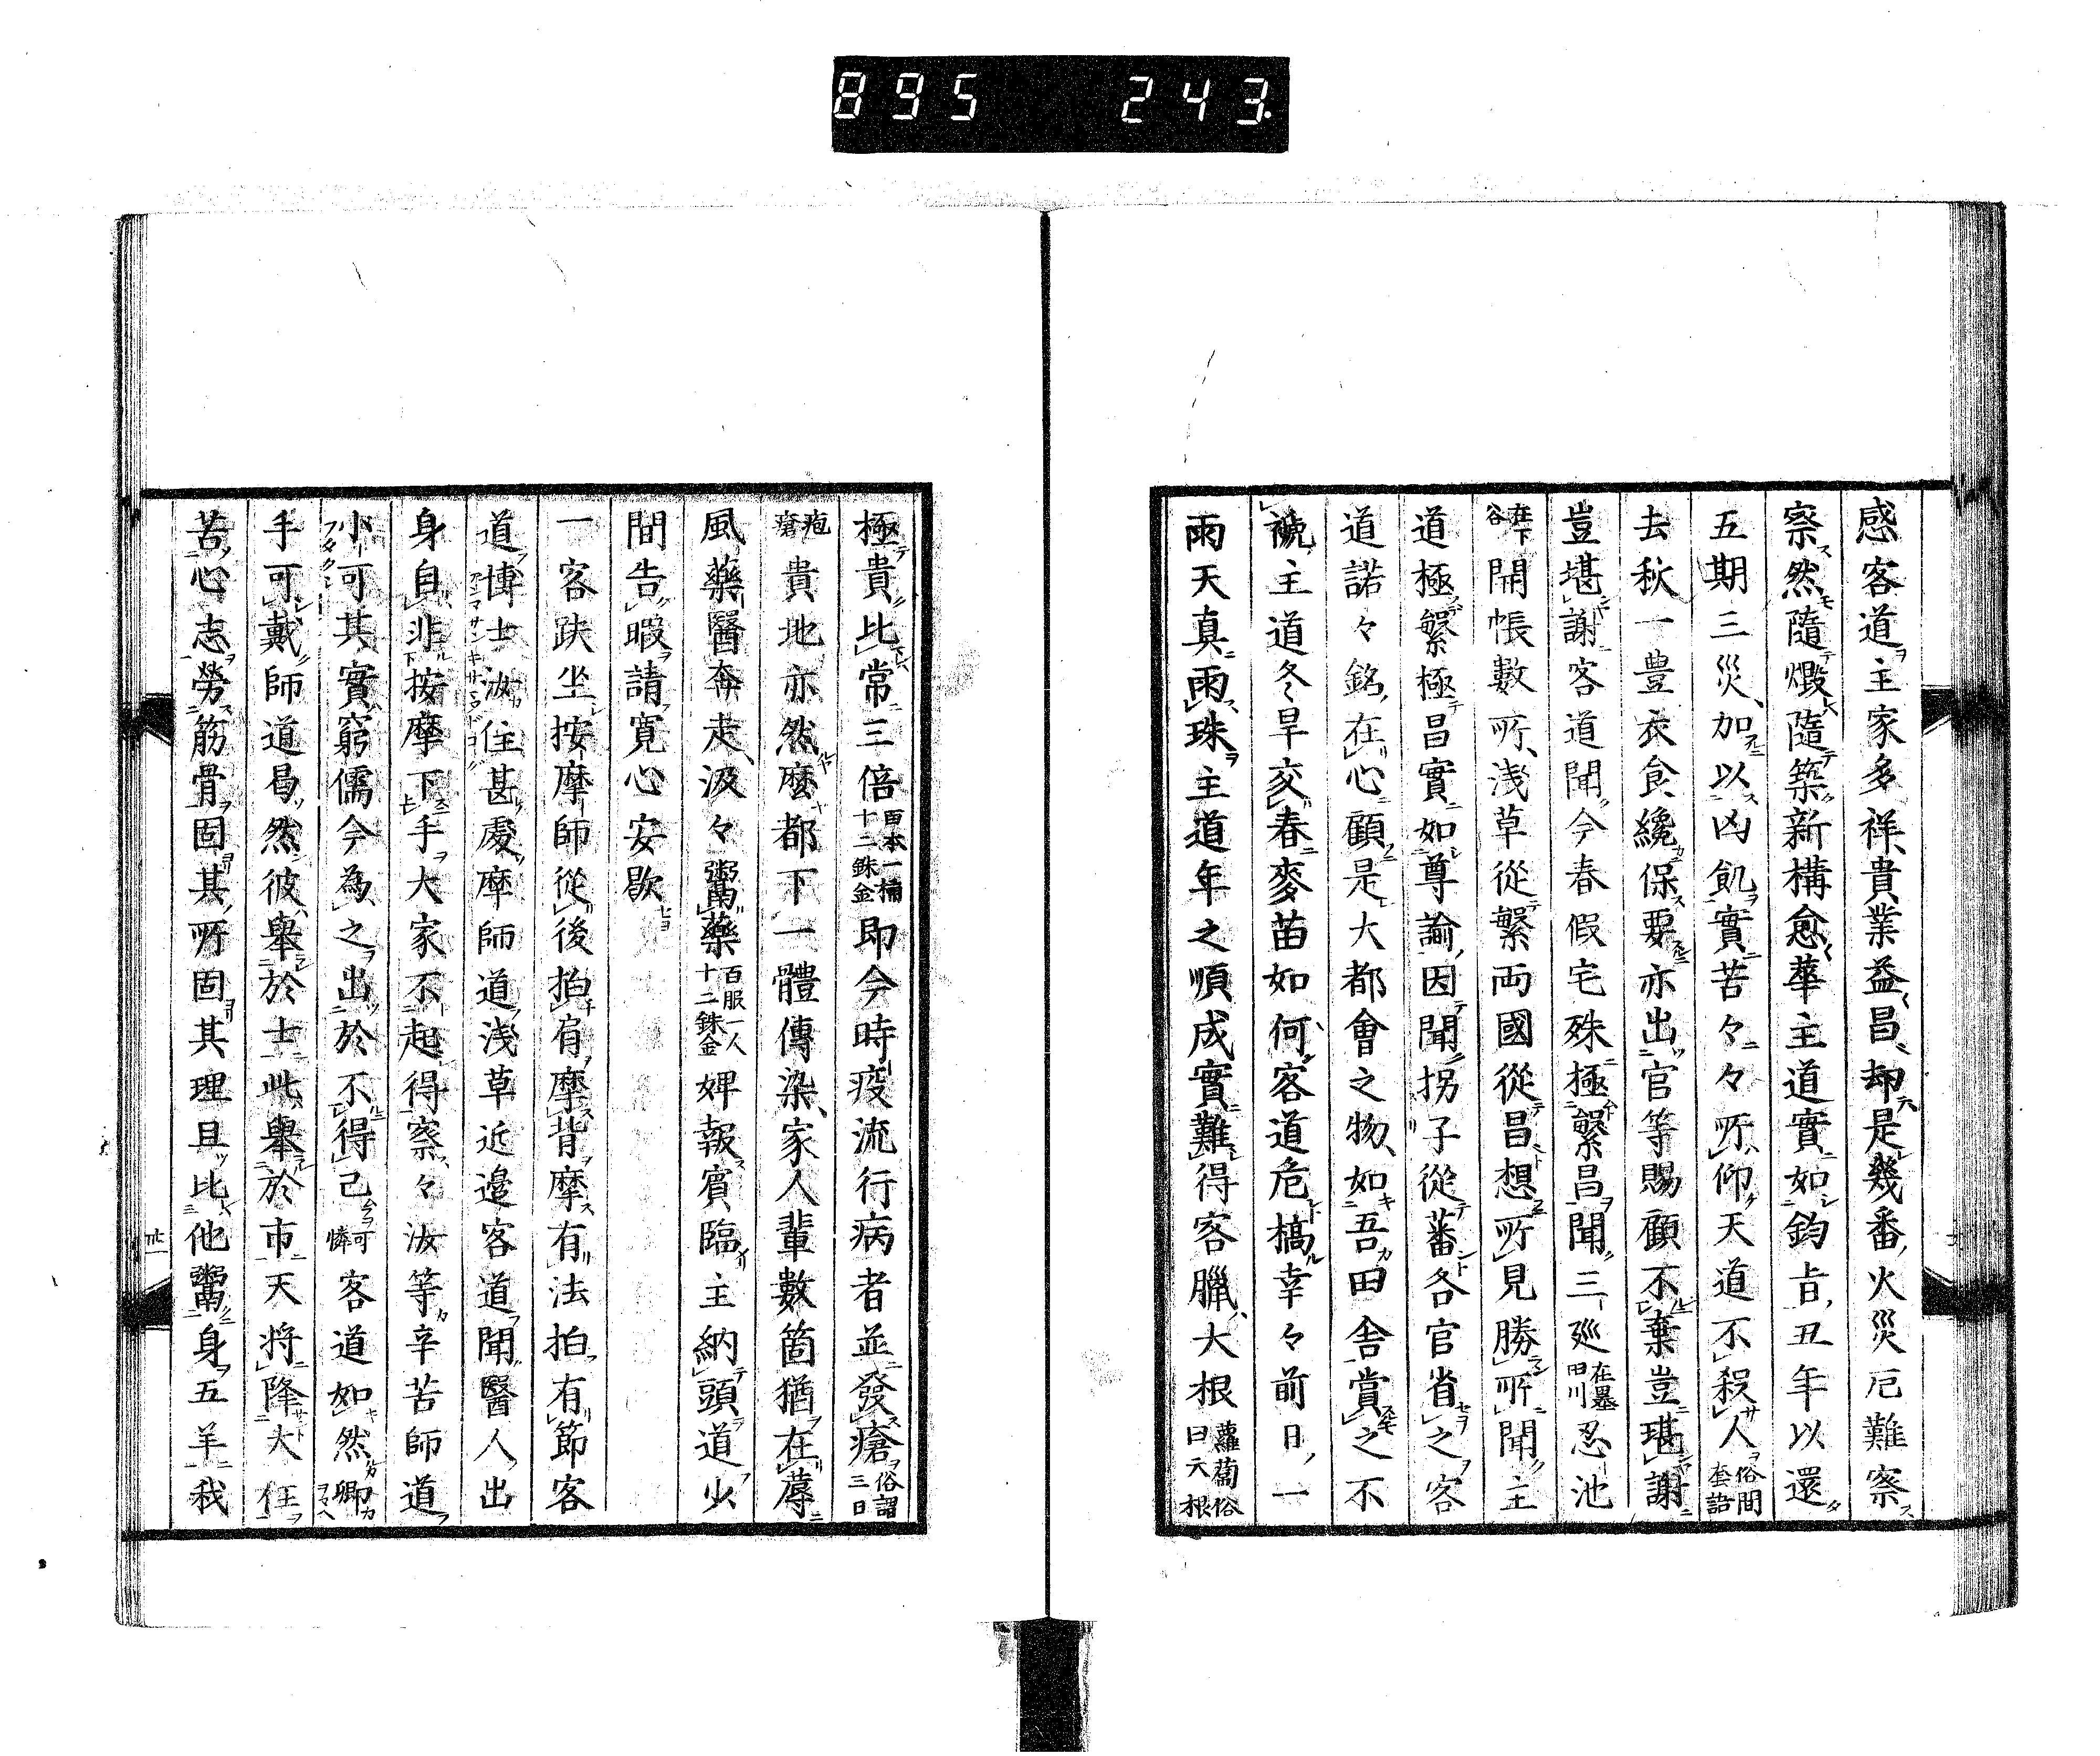 895 243
感客道主家多祥貴業益昌却是幾番火災厄難察
察然隨燬隨築新構愈華主道實如鈞旨丑年以還
五期三災加以凶飢實苦々々所仰天道不殺人俗間套語
去秋一豊衣食纔保要亦出官等賜顧不棄豈堪謝
豈堪謝客道聞今春假宅殊極繁昌聞三廵在墨田川忍池
在下谷開帳數所淺草從繁両國從昌想所見勝所聞主
道極繁極昌實如尊諭因聞拐子從蕃各官省之客
道諾々銘在心顧是大都會之物如吾田舎賞之不
褫主道冬旱交春麥苗如何客道危槁幸々前日一
雨天真雨珠主道年之順成實難得客臘大根蘿蔔俗曰大根
極貴比常三倍百本一桶十二銖金即今時疫流行病者並發瘡俗謂三日
疱瘡貴地亦然麼都下一體傳染家人輩數箇猶在蓐
風藥醫奔走汲々鬻藥百服一人十二銖金婢報賓臨主納頭道少
間告暇請寛心安歇
一客趺坐按摩師從後拍肩摩背摩有法拍有節客
道博士汝住甚處摩師道淺草近邉客道聞醫人出
身自非按摩下手大家不起得察々汝等辛苦師道
小可其實窮儒今為之出於不得已可憐客道如然卿
手可戴師道曷然彼舉於士此舉於市天將降大任
苦心志勞筋骨固其所固其理且比他鬻身五羊我